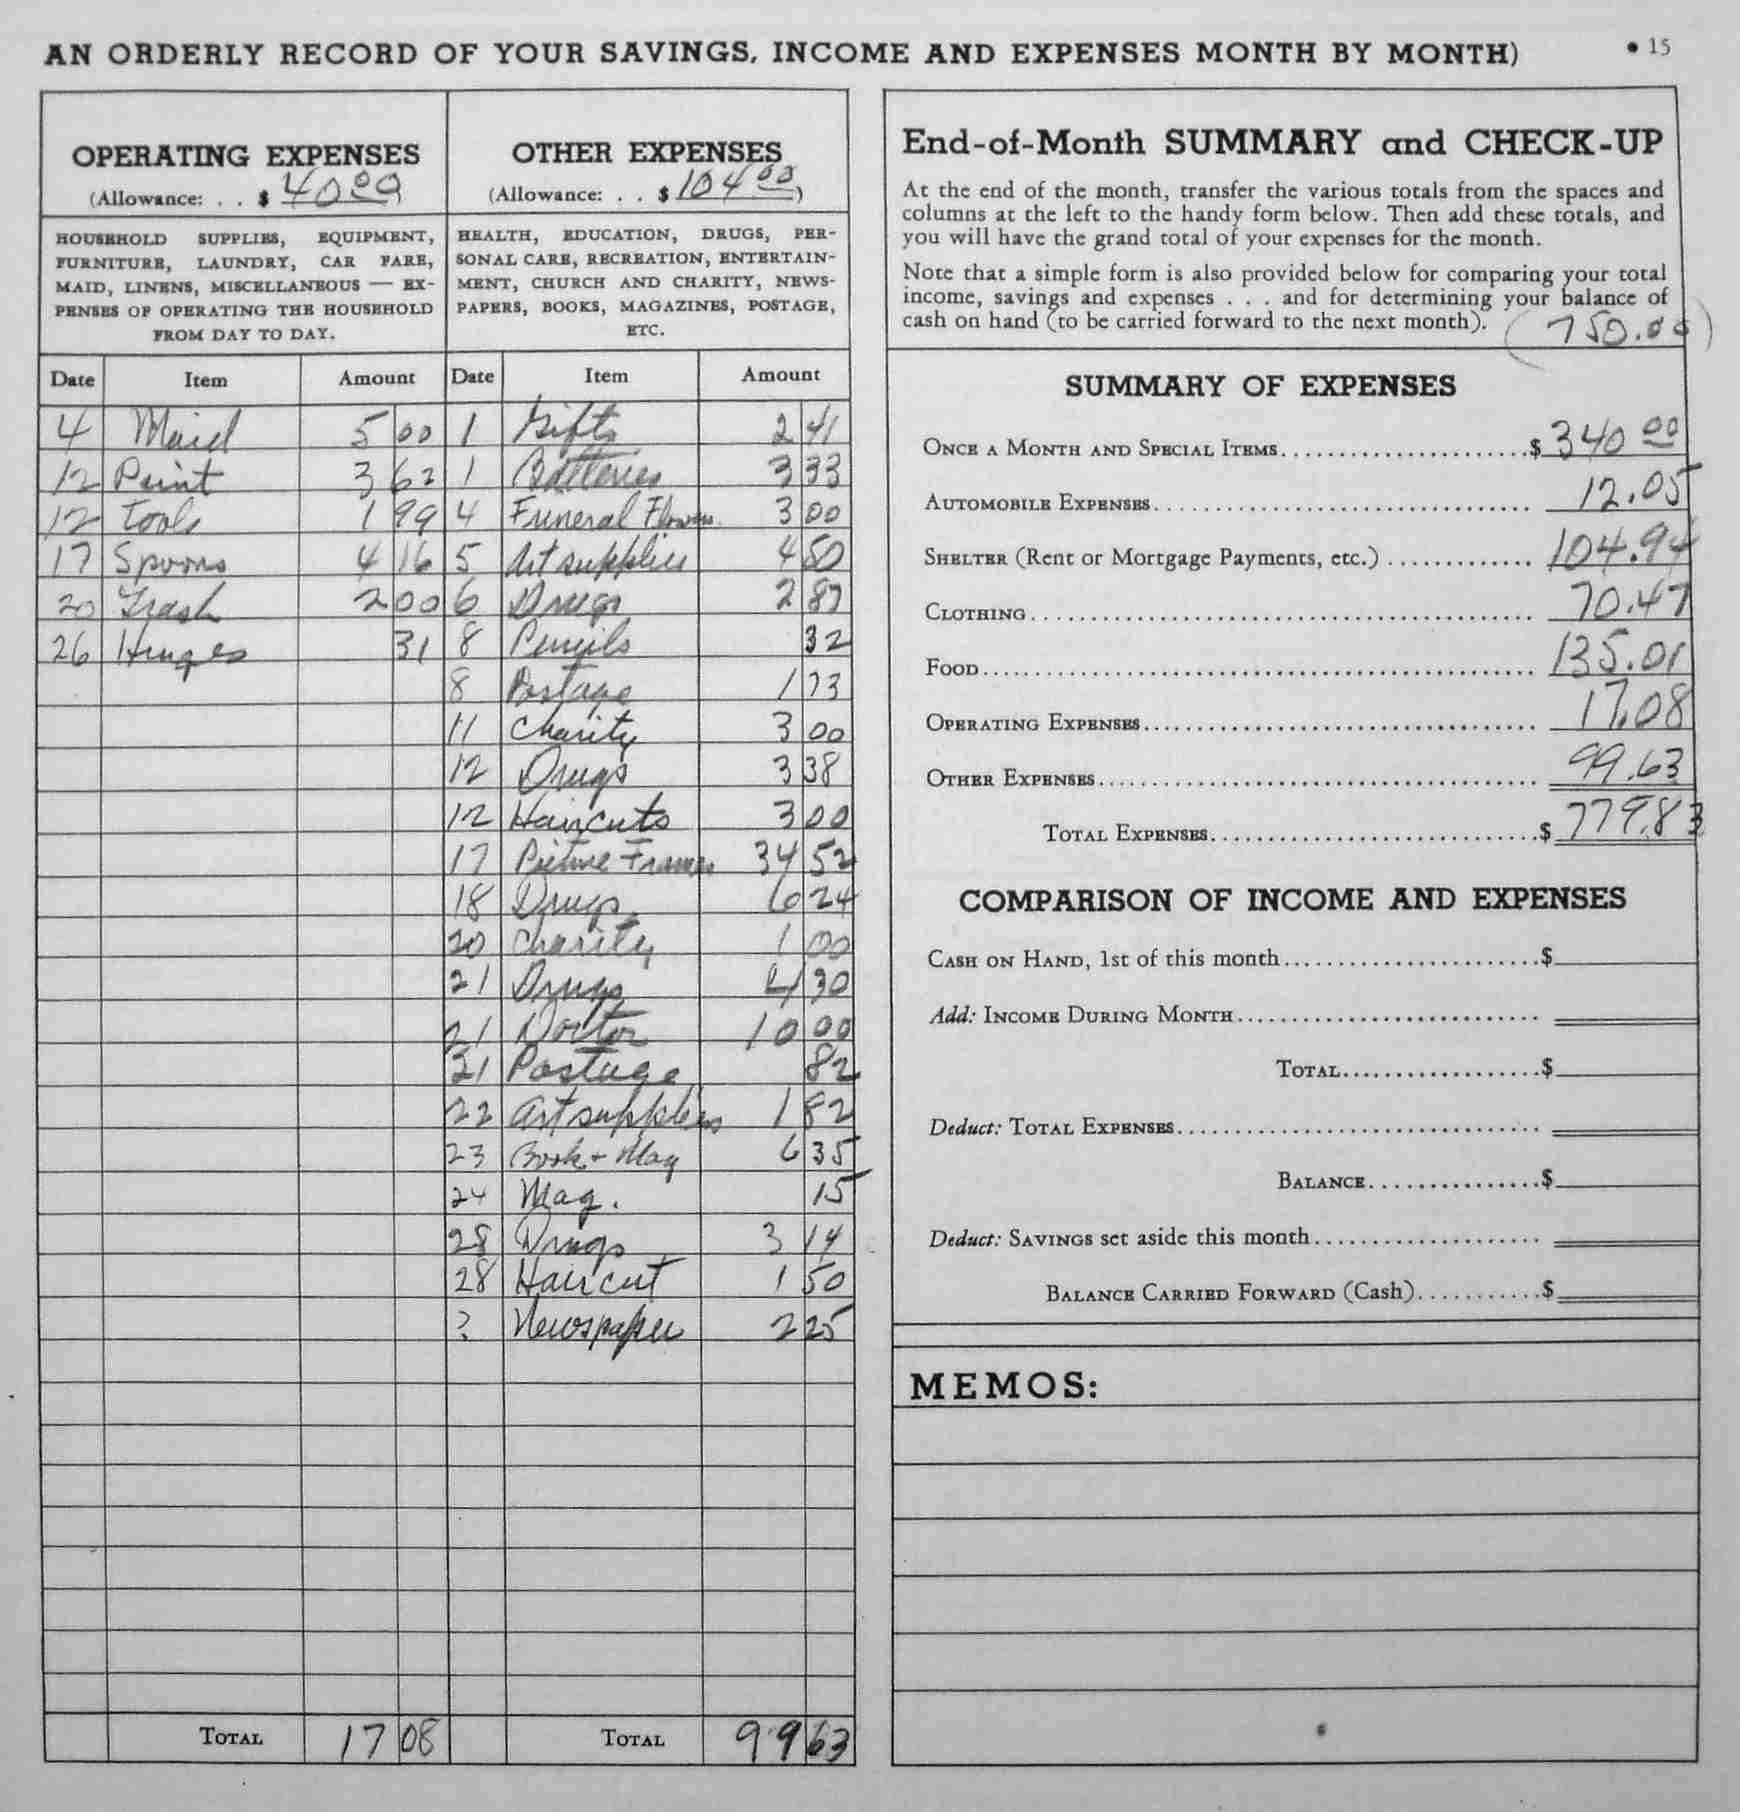 AN ORDERLY RECORD OF YOUR SAVINGS, INCOME AND EXPENSES MONTH BY MONTH)
• 15
OPERATING EXPENSES
(Allowance: . . $ 40 00
HOUSEHOLD SUPPLIES, EQUIPMENT,
FURNITURE, LAUNDRY, CAR FARE,
MAID, LINENS, MISCELLANEOUS — EX-
PENSES OF OPERATING THE HOUSEHOLD
FROM DAY TO DAY.
Date Item Amount
4 Maid 5 00
12 Paint 3 62
12 Tools 1 99
17 Spoons 4 16
20 Trash 2 00
26 Hinges 31
Total 17 08
OTHER EXPENSES
(Allowance: . . $ 104 00)
HEALTH, EDUCATION, DRUGS, PER-
SONAL CARE, RECREATION, ENTERTAIN-
MENT, CHURCH AND CHARITY, NEWS-
PAPERS, BOOKS, MAGAZINES, POSTAGE,
ETC.
Date Item Amount
1 Gifts 2 41
1 Batteries 3 33
4 Funeral Flowers 3 00
5 Art supplies 4 50
6 Drugs 2 87
8 Pencils 32
8 Postage 1 73
11 Charity 3 00
12 Drugs 3 38
12 Haircuts 3 00
17 Picture Frames 34 52
18 Drugs 6 24
20 Charity 1 00
21 Drugs 4 30
21 Doctor 10 00
21 Postage 82
22 Art supplies 1 82
23 Book + Mag 6 35
24 Mag. 15
28 Drugs 3 14
28 Haircut 1 50
? Newspaper 2 25
Total 99 63
End-of-Month SUMMARY and CHECK-UP
At the end of the month, transfer the various totals from the spaces and
columns at the left to the handy form below. Then add these totals, and
you will have the grand total of your expenses for the month.
Note that a simple form is also provided below for comparing your total
income, savings and expenses . . . and for determining your balance of
cash on hand (to be carried forward to the next month).
(750.00)
SUMMARY OF EXPENSES
Once a Month and Special Items $ 340 00
Automobile Expenses 12.05
Shelter (Rent or Mortgage Payments, etc.) 104.94
Clothing 70.47
Food 135.01
Operating Expenses 17.08
Other Expenses 99.63
Total Expenses $ 779.83
COMPARISON OF INCOME AND EXPENSES
Cash on Hand, 1st of this month $
Add: Income During Month
Total $
Deduct: Total Expenses
Balance $
Deduct: Savings set aside this month
Balance Carried Forward (Cash) $
MEMOS: